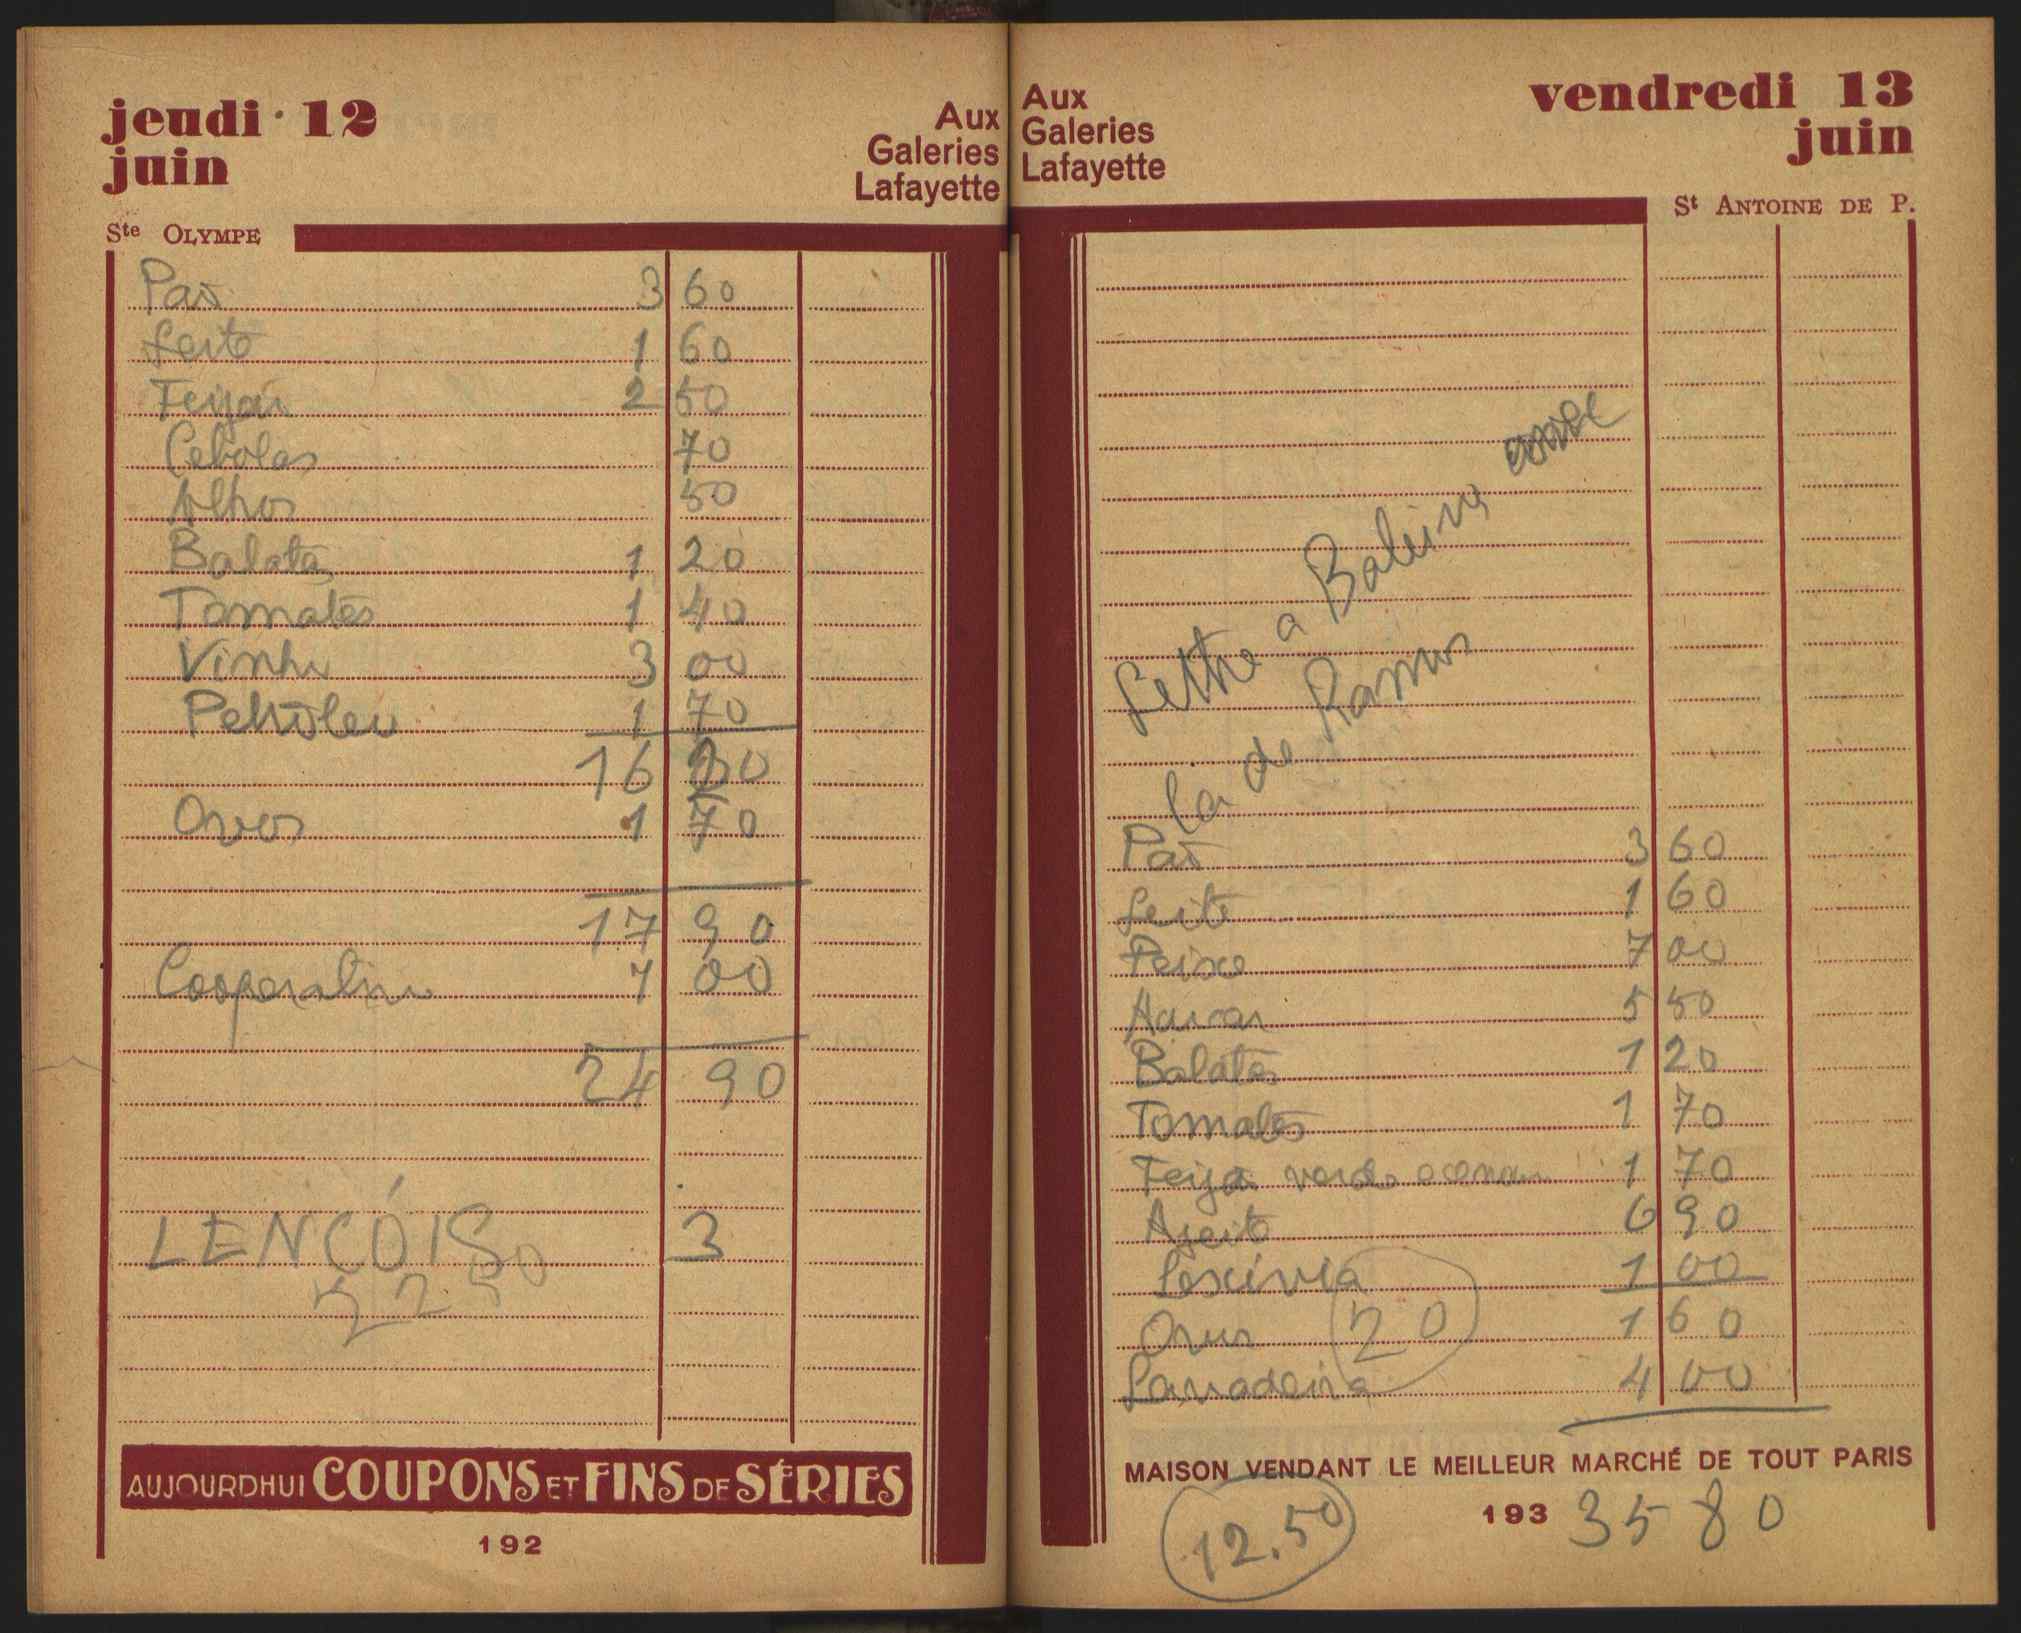 jeudi 12
juin
Aux
Galeries
Lafayette
Ste OLYMPE
Pão 3 60
Leite 1 60
Feijão 2 50
Cebolas 70
Alhos 50
Batatas 1 20
Tomates 1 40
Vinho 3 00
Petróleo 1 70
16 20
Ovos 1 70
17 90
Cooperativa 7 00
24 90
LENÇÓIS 3
AUJOURDHUI COUPONS ET FINS DE SÉRIES
192
Aux
Galeries
Lafayette
vendredi 13
juin
St ANTOINE DE P.
Lettre a
la de Ramos
Pão 3 60
Leite 1 60
Peixe 7 00
Açucar 5 50
Batatas 1 20
Tomates 1 70
Feijão verde cenoura 1 70
Azeite 6 90
Lexívia 1 00
Ovos 20 1 60
Lavadeira 4 00
MAISON VENDANT LE MEILLEUR MARCHÉ DE TOUT PARIS
193 35 80
12.50